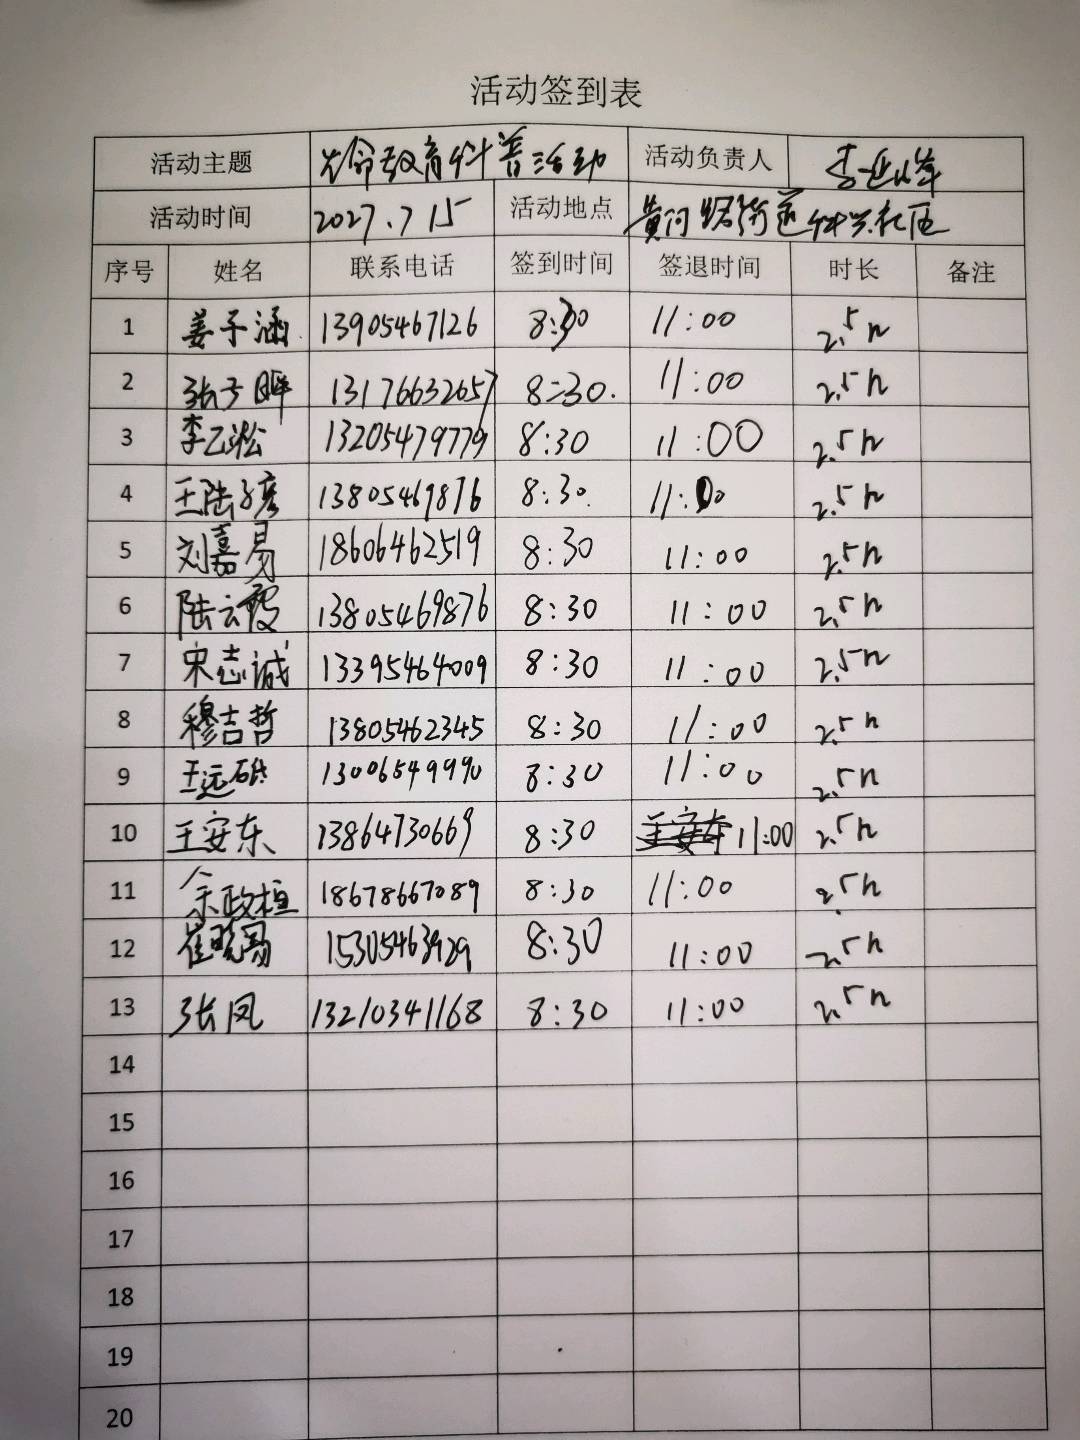 活动签到表
活动主题 生命教育科普活动 活动负责人
活动时间 2027.7 15 活动地点 黄河路街道科兴社区
序号 姓名 联系电话 签到时间 签退时间 时长 备注
1 姜子涵 13905467126 8:30 11:00 2.5h
2 张子晖 13176632657 8:30. 11:00 2.5h
3 李乙淞 13205479779 8:30 11:00 2.5h
4 王陆彦 13805469876 8:30. 11:00 2.5h
5 刘嘉易 18606462519 8:30 11:00 2.5h
6 陆云霞 13805469876 8:30 11:00 2.5h
7 宋志诚 13395464009 8:30 11:00 2.5h
8 穆吉哲 13805462345 8:30 11:00 2.5h
9 王远 13006549990 8:30 11:00 2.5h
10 王安东 13864730669 8:30 王安东 11:00 2.5h
11 余政桓 18678667089 8:30 11:00 2.5h
12 崔晓 15305463929 8:30 11:00 2.5h
13 张凤 13210341168 8:30 11:00 2.5h
14
15
16
17
18
19
20